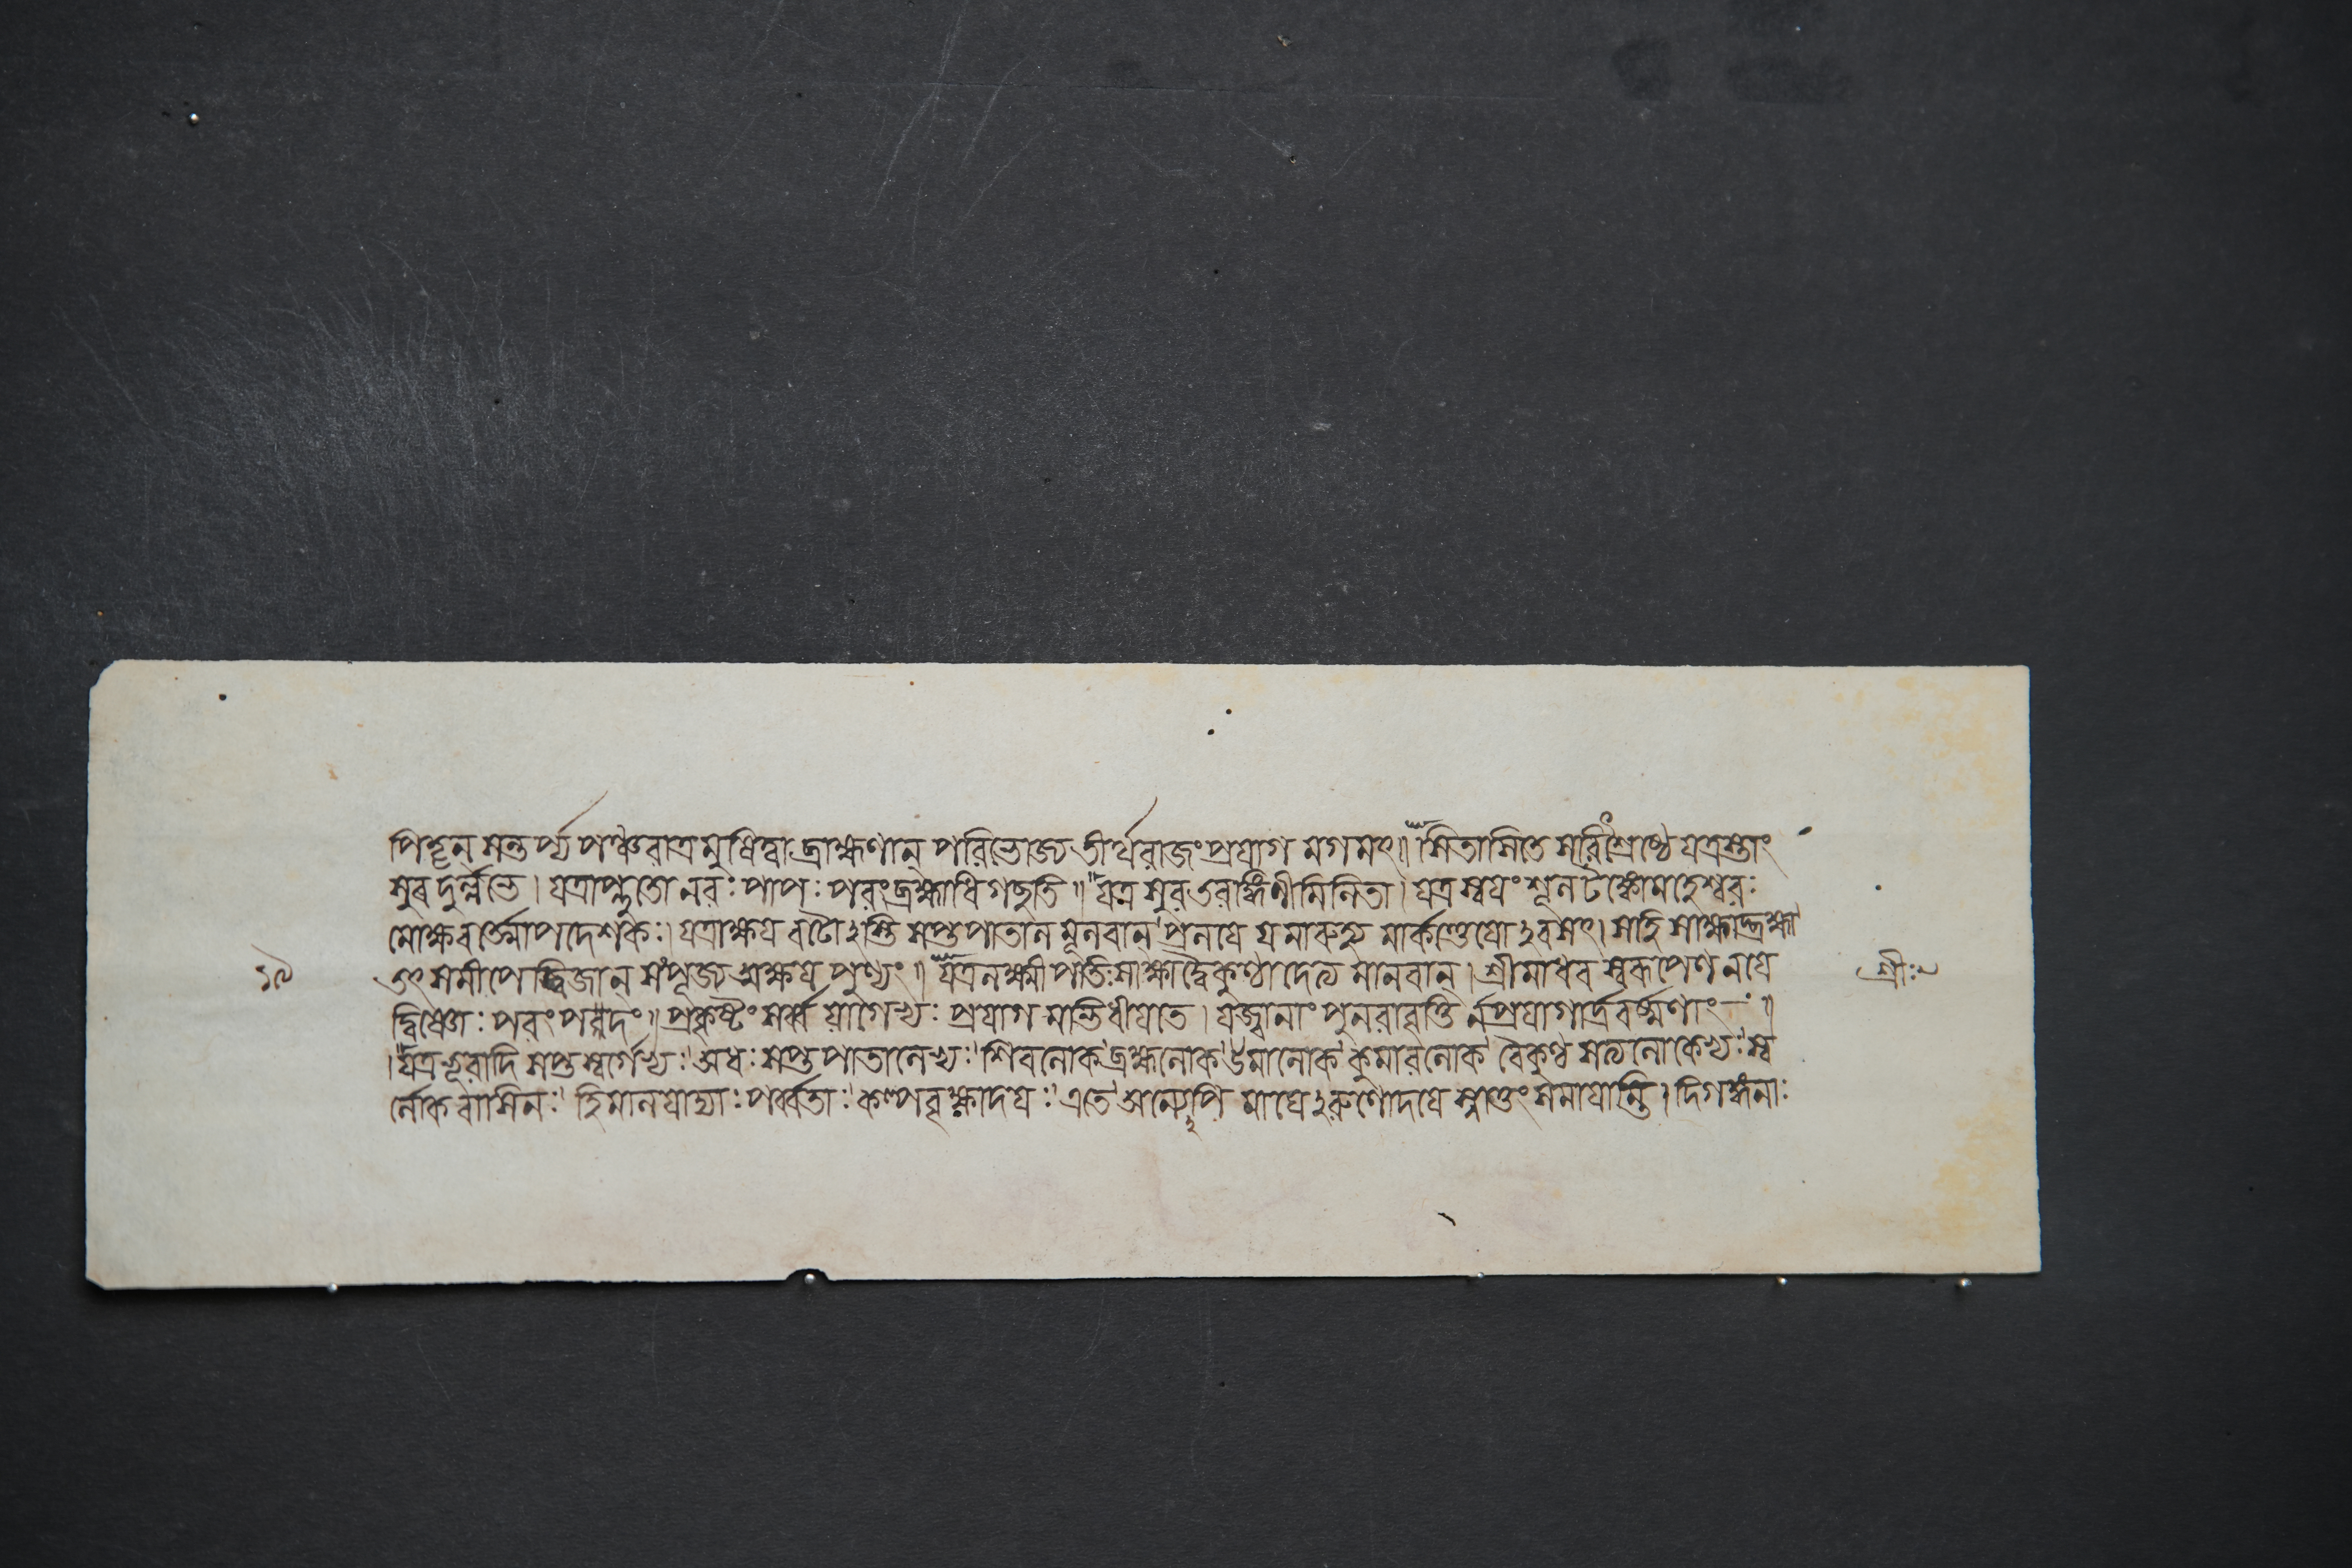 পিতৄন্ সন্তর্প্য পঞ্চরাত্রমুষিত্বা ব্রাহ্মণান্ পরিভোজ্য তীর্থরাজং প্রয়াগমগমৎ॥ সিতাসিতে সরিৎশ্রেষ্ঠে যত্রাস্তাং
সুরদুর্ল্লভে। যত্রাপ্লুতো নরঃ পাপঃ পরংব্রহ্মাধিগছতি॥ যত্র সুরতরঙ্গিণী মিলিতা। যত্র স্বয়ং শূলটঙ্কো মহেশ্বরঃ
মোক্ষবর্ত্মোপদেশকঃ। যত্রাক্ষয়বটোঽস্তি সপ্তপাতালমূলবান্ প্রলয়ে যমারুহ্য মার্কণ্ডেয়োঽবসৎ। সহি সাক্ষাদ্ব্রহ্মা
তৎসমীপে দ্বিজান্ সংপূজ্য অক্ষয়পুণ্যং॥ যত্র লক্ষ্মীপতিঃ সাক্ষাদ্বৈকুণ্ঠাদেত্য মানবান্। শ্রীমাধবস্বরূপেণ নয়ে
দ্বিষ্ণোঃ পরংপদং॥ প্রকৃষ্টং সর্ব্বযাগেভ্যঃ প্রয়াগমভিধীয়তে। যজ্বানাং পুনরাবৃত্তি র্নপ্রয়াগার্দ্রবর্ষ্মণাং॥
। যত্র ভূরাদি সপ্তস্বর্গেভ্যঃ অধঃ সপ্তপাতালেভ্যঃ শিবলোক ব্রহ্মলোক উমালোক কুমারলোক বৈকুণ্ঠ সত্যলোকেভ্যঃ স্ব
র্লোকবাসিনঃ হিমালয়াদ্যাঃ পর্ব্বতাঃ কল্পবৃক্ষাদয়ঃ এতে অন্যেঽপি মাঘেঽরুণোদয়ে স্নাতুং সমায়ান্তি। দিগঙ্গনাঃ
১৯
শ্রীঃ